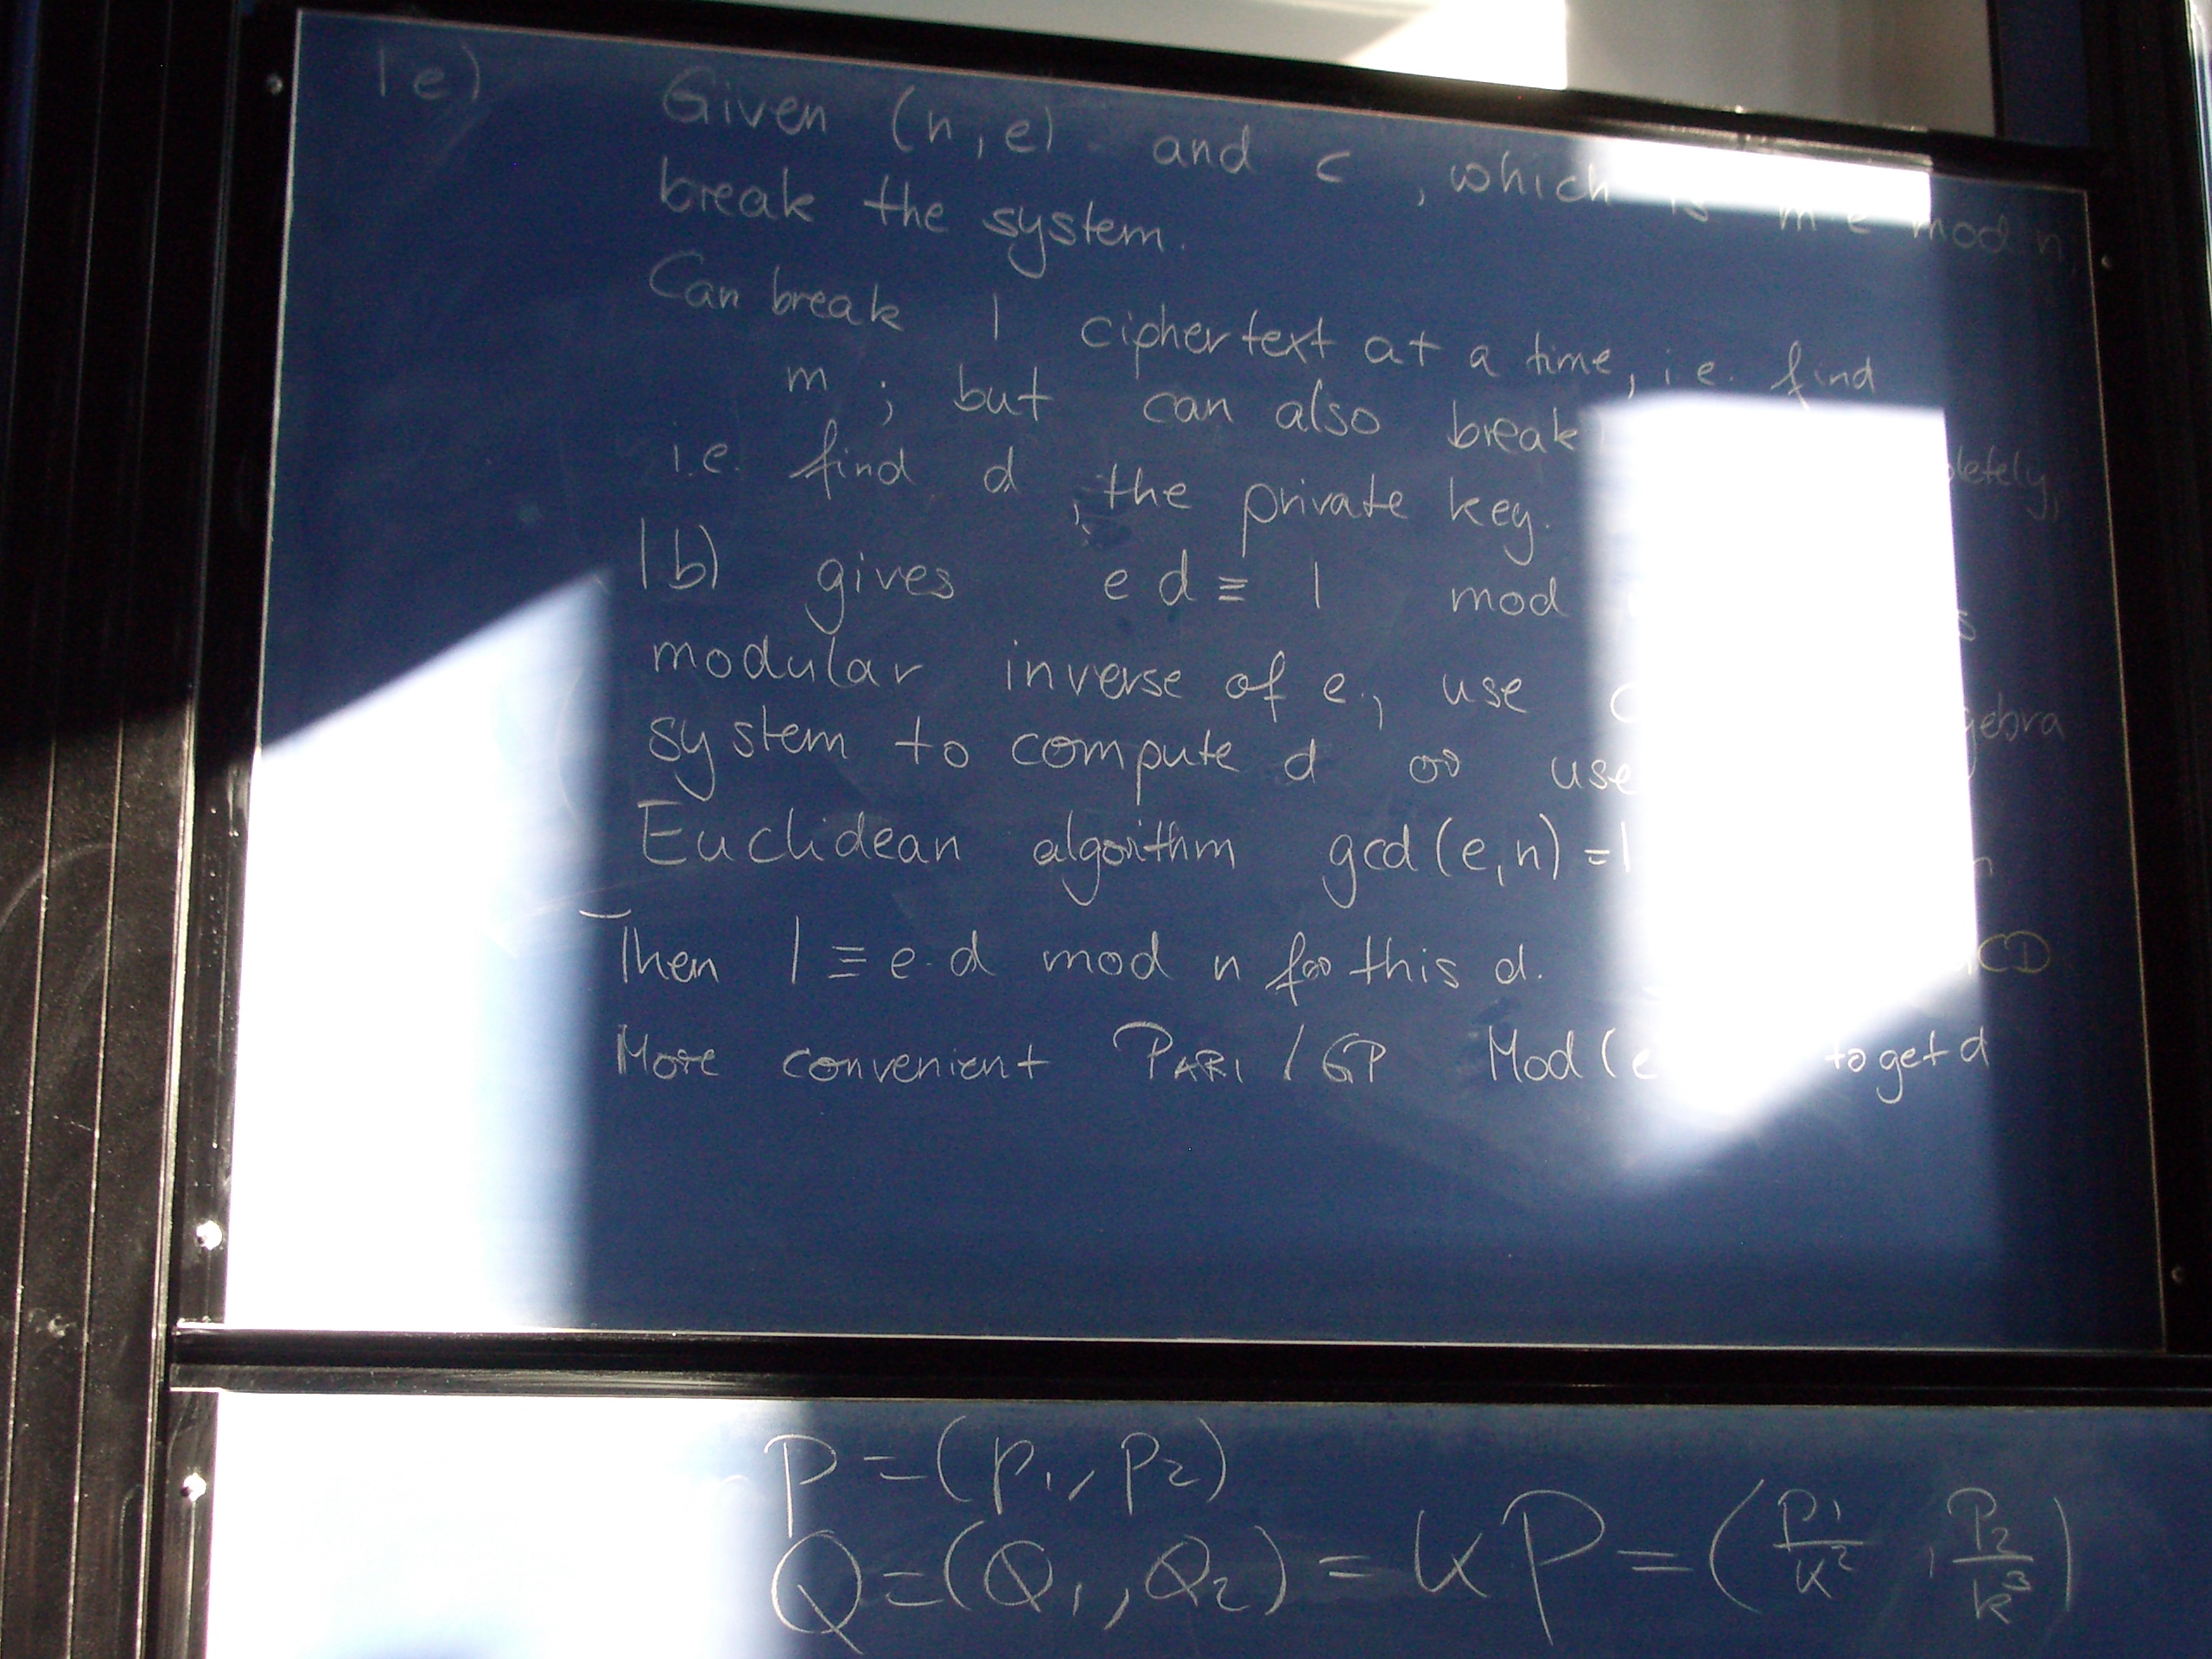 1e) Given (n, e) and c, which is m e mod n,
break the system.
Can break 1 ciphertext at a time, i.e. find
m ; but can also break
i.e. find d, the private key.
1b) gives e d ≡ 1 mod
modular inverse of e, use
system to compute d or use
Euclidean algorithm gcd(e,n) = 1
Then 1 ≡ e·d mod n for this d.
More convenient PARI / GP Mod(e to get d
P = (P₁, P₂)
Q = (Q₁, Q₂) = kP = (P₁/k², P₂/k³)